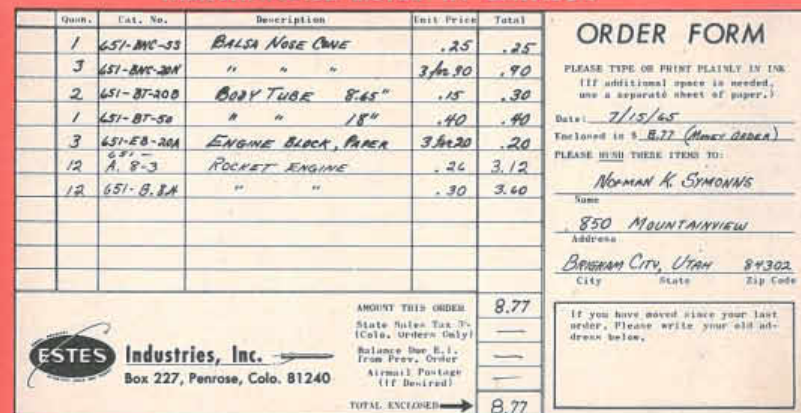 Quan. Cat. No. Description Unit Price Total
1 651-BNC-55 BALSA NOSE CONE .25 .25
3 651-BNC-20N " " " 3 for 90 .90
2 651-BT-20B BODY TUBE 8.65" .15 .30
1 651-BT-50 " " 18" .40 .40
3 651-EB-20A ENGINE BLOCK, PAPER 3 for 20 .20
12 651- A. 8-3 ROCKET ENGINE .26 3.12
12 651-B.8A " " .30 3.60
AMOUNT THIS ORDER 8.77
State Sales Tax
(Colo. Orders Only) —
Balance Due E.I.
from Prev. Order —
Airmail Postage
(If Desired) —
TOTAL ENCLOSED 8.77
ESTES Industries, Inc.
Box 227, Penrose, Colo. 81240
ORDER FORM
PLEASE TYPE OR PRINT PLAINLY IN INK
(If additional space is needed,
use a separate sheet of paper.)
Date: 7/15/65
Enclosed is $ 8.77 (MONEY ORDER)
PLEASE RUSH THESE ITEMS TO:
NORMAN K. SYMONNS
Name
850 MOUNTAINVIEW
Address
BRIGHAM CITY, UTAH 84302
City State Zip Code
If you have moved since your last
order, Please write your old ad-
dress below.